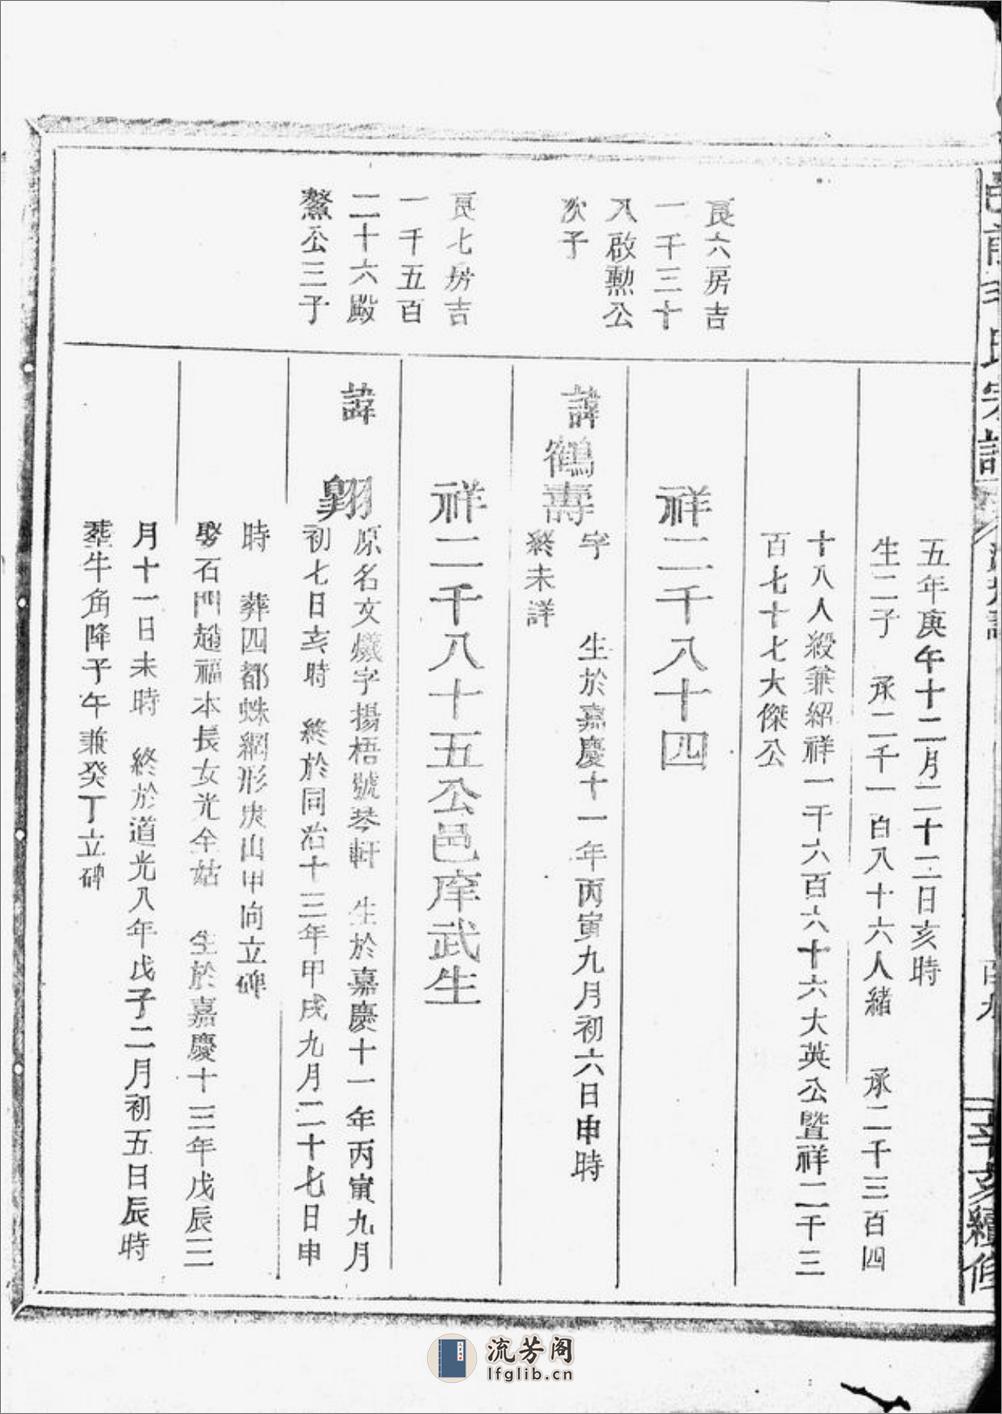 五年庚午十二月二十二日亥時
生二子　承二千一百八十六人緒　承二千三百四
十八人殺兼紹祥一千六百六十六大英公暨祥二千三
百七十七大傑公
長六房吉
一千三十
八啟勲公
次子
祥二千八十四
諱鶴壽
字　生於嘉慶十一年丙寅九月初六日申時
終未詳
長七房吉
一千五百
二十六殿
鰲公三子
祥二千八十五公邑庠武生
諱　翺
原名文熾字揚梧號琴軒　生於嘉慶十一年丙寅九月
初七日亥時　終於同治十三年甲戌九月二十七日申
時　葬四都蛛網形庚山甲向立碑
娶石門趙福本長女光全姑　生於嘉慶十三年戊辰三
月十一日未時　終於道光八年戊子二月初五日辰時
葬牛角降子午兼癸丁立碑
辛亥續修
流芳阁
lfglib.cn